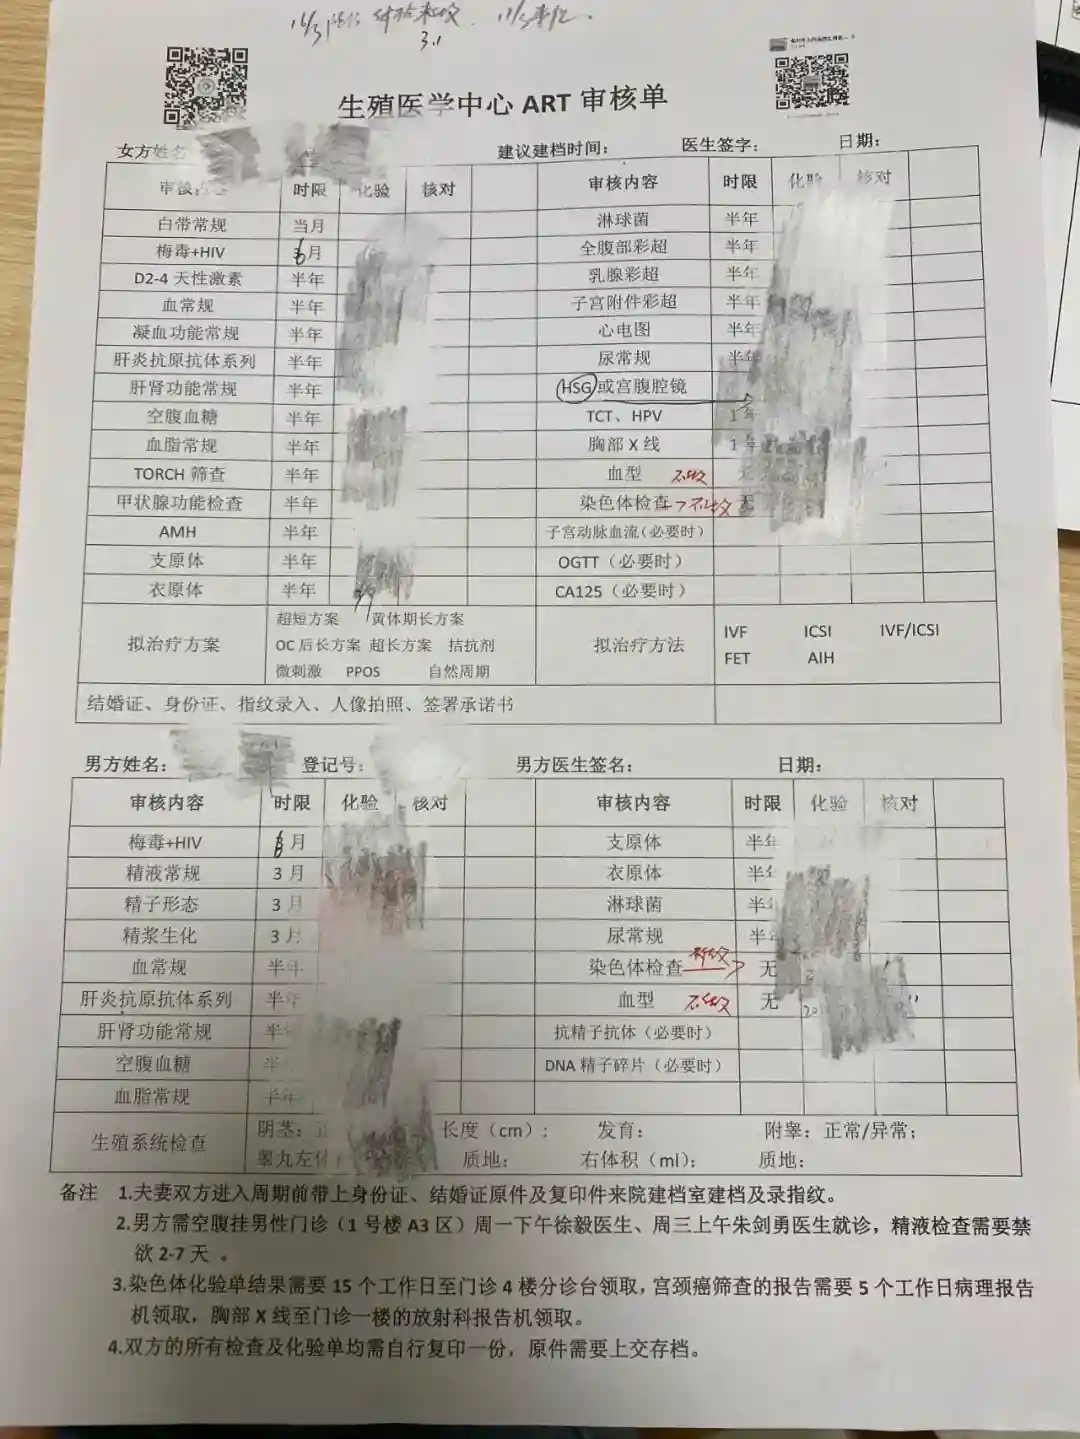 生殖医学中心 ART 审核单
女方姓名 建议建档时间： 医生签字： 日期：
审核内容 时限 化验 核对 审核内容 时限 化验 核对
白带常规 当月 淋球菌 半年
梅毒+HIV 6月 全腹部彩超 半年
D2-4 天性激素 半年 乳腺彩超 半年
血常规 半年 子宫附件彩超 半年
凝血功能常规 半年 心电图 半年
肝炎抗原抗体系列 半年 尿常规 半年
肝肾功能常规 半年 HSG或宫腹腔镜
空腹血糖 半年 TCT、HPV 1年
血脂常规 半年 胸部 X 线 1年
TORCH 筛查 半年 血型 无
甲状腺功能检查 半年 染色体检查 无
AMH 半年 子宫动脉血流（必要时）
支原体 半年 OGTT（必要时）
衣原体 半年 CA125（必要时）
拟治疗方案 超短方案 黄体期长方案 拟治疗方法 IVF ICSI IVF/ICSI
OC 后长方案 超长方案 拮抗剂 FET AIH
微刺激 PPOS 自然周期
结婚证、身份证、指纹录入、人像拍照、签署承诺书
男方姓名： 登记号： 男方医生签名： 日期：
审核内容 时限 化验 核对 审核内容 时限 化验 核对
梅毒+HIV 6月 支原体 半年
精液常规 3 月 衣原体 半年
精子形态 3 月 淋球菌 半年
精浆生化 3 月 尿常规 半年
血常规 半年 染色体检查 无
肝炎抗原抗体系列 半年 血型 无
肝肾功能常规 半年 抗精子抗体（必要时）
空腹血糖 半年 DNA 精子碎片（必要时）
血脂常规 半年
生殖系统检查 阴茎： 长度（cm）； 发育： 附睾：正常/异常；
睾丸左体 质地： 右体积（ml）： 质地：
备注 1.夫妻双方进入周期前带上身份证、结婚证原件及复印件来院建档室建档及录指纹。
2.男方需空腹挂男性门诊（1 号楼 A3 区）周一下午徐毅医生、周三上午朱剑勇医生就诊，精液检查需要禁
欲 2-7 天 。
3.染色体化验单结果需要 15 个工作日至门诊 4 楼分诊台领取，宫颈癌筛查的报告需要 5 个工作日病理报告
机领取，胸部 X 线至门诊一楼的放射科报告机领取。
4.双方的所有检查及化验单均需自行复印一份，原件需要上交存档。